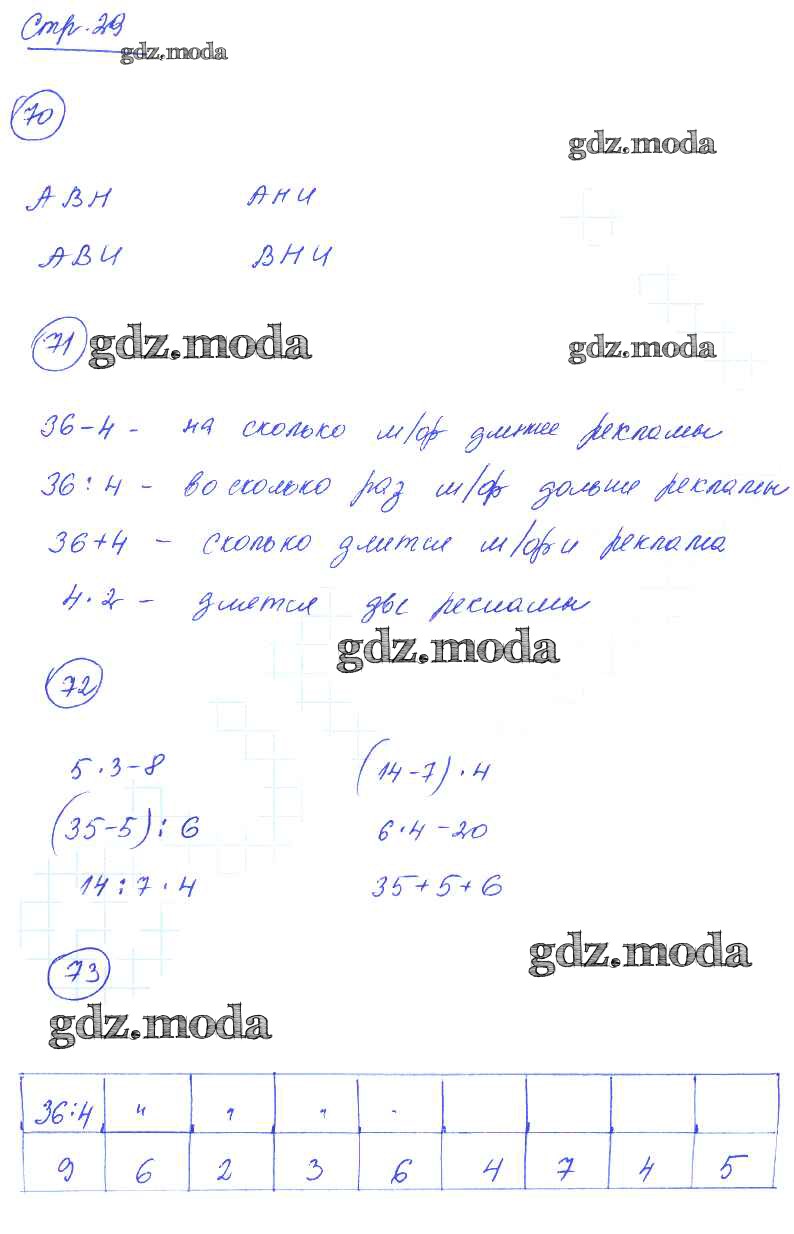 Стр. 29
gdz.moda
70
gdz.moda
АВН АНИ
АВИ ВНИ
71 gdz.moda gdz.moda
36-4 - на сколько м/ф длиннее рекламы
36:4 - во сколько раз м/ф дольше рекламы
36+4 - сколько длится м/ф и реклама
4·2 - длятся две рекламы
gdz.moda
72
5·3-8 (14-7)·4
(35-5):6 6·4-20
14:7·4 35+5+6
gdz.moda
73
gdz.moda
36:4 "
9 6 2 3 6 4 7 4 5